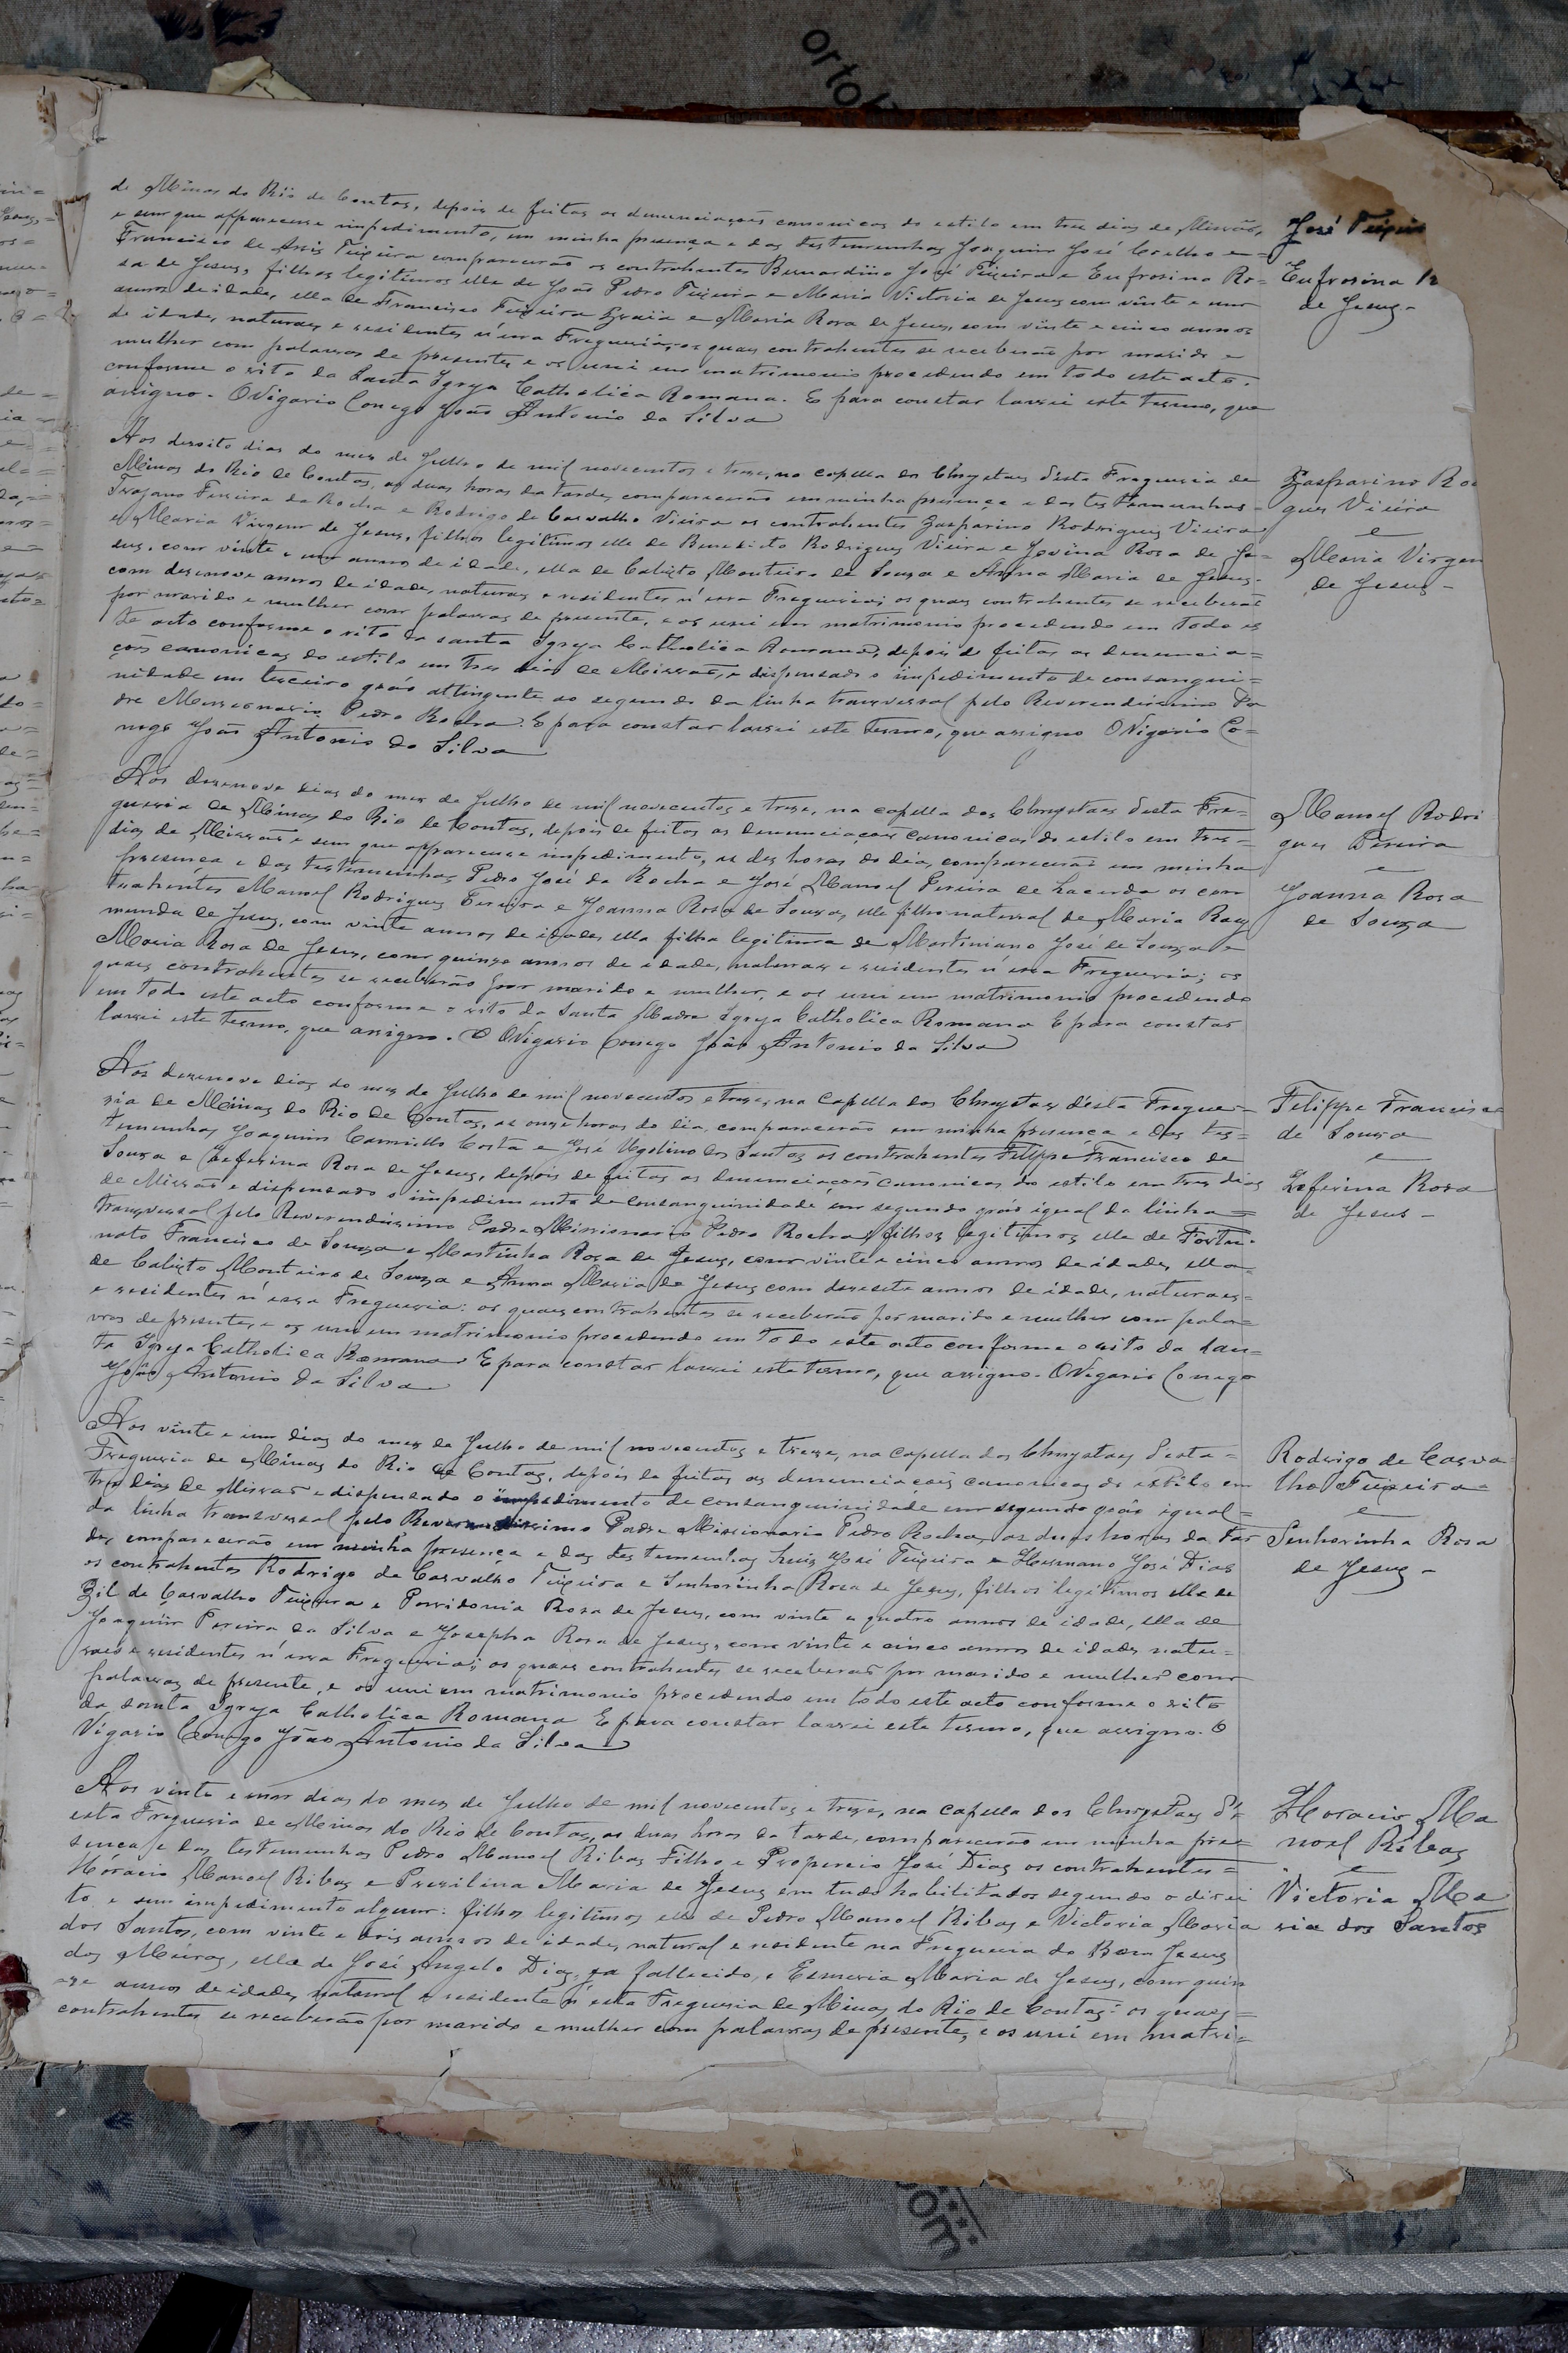 de Minas do Rio de Contas, depois de feitas as denunciações canonicas do estilo em tres dias de Missão,
e sem que apparecesse impedimento, em minha presença e das testemunhas Joaquim José Coelho e=
Francisco de Assis Teixeira comparecerão os contrahentes Bernardino José Teixeira e Eufrosina Ro=
sa de Jesus, filhos legitimos elle de João Pedro Teixeira e Maria Victoria de Jesus com vinte e um
annos de idade, ella de Francisco Teixeira e Maria Rosa de Jesus, com vinte e cinco annos
de idade, naturaes e residentes n'essa Freguesia; os quaes contrahentes se receberão por marido e
mulher com palavras de presente, e os uni em matrimonio procedendo em todo este acto.
conforme o rito da Santa Igreja Catholica Romana. E para constar lavrei este termo, que
assigno. O Vigario Conego João Antonio da Silva
José Teixeir
Eufrosina R
de Jesus-
Aos desoito dias do mes de Julho de mil novecentos e trese, na capella dos Chrystaes d'esta Freguesia de
Minas do Rio de Contas, as duas horas da tarde, comparecerão em minha presença e das testemunhas=
Trajano Ferreira da Rocha e Rodrigo de Carvalho Vieira os contrahentes Gasparino Rodrigues Vieira
e Maria Virgem de Jesus, filhos legitimos elle de Benedicto Rodrigues Vieira e Jovina Rosa de Je=
sus, com vinte e um annos de idade, ella de Calixto Monteiro de Souza e Anna Maria de Jesus.
com desenove annos de idade, naturaes e residentes n'essa Freguesia; os quaes contrahentes se receberão
por marido e mulher com palavras de presente, e os uni em matrimonio procedendo em todo es
te acto conforme o rito da santa Igreja Catholica Romana, depois de feitas as denuncia=
ções canonicas do estilo em tres dias de Missão, e dispensado o impedimento de consangui=
nidade em terceiro gráo attingente ao segundo da linha transversal pelo Reverendissimo Pa
dre Missionario Pedro Rocha. E para constar lavrei este termo, que assigno O Vigario Co=
nego João Antonio da Silva
Gasparino Ro
gues Vieira
e
Maria Virgem
de Jesus-
Aos desenove dias do mes de Julho de mil novecentos e trese, na capella dos Chrystaes d'esta Fre=
guesia de Minas do Rio de Contas, depois de feitos as denunciações canonicas do estilo em tres=
dias de Missão e sem que apparecesse impedimento, as des horas do dia, comparecerão em minha
presença e das testemunhas Pedro José da Rocha e José Manoel Pereira de Lacerda os con
trahentes Manoel Rodrigues Pereira e Joanna Rosa de Souza, elle filho natural de Maria Ray
munda de Jesus, com vinte annos de idade, ella filha legitima de Martiniano José de Souza e
Maria Rosa de Jesus, com quinze annos de idade, naturaes e residentes n'essa Freguesia; os
quaes contrahentes se receberão por marido e mulher, e os uni em matrimonio procedendo
em todo este acto conforme o rito da Santa Madre Igreja Catholica Romana E para constar
lavrei este termo, que assigno. O Vigario Conego João Antonio da Silva
Manoel Rodri
gues Pereira
e
Joanna Rosa
de Souza
Aos desenove dias do mes de Julho de mil novecentos e trese, na capella dos Chrystaes d'esta Fregue=
sia de Minas do Rio de Contas, as onze horas do dia, comparecerão em minha presença e das tes=
temunhas Joaquim Camillo Costa e José Ugolino dos Santos os contrahentes Filippe Francisco de
Souza e Zeferina Rosa de Jesus, depois de feitas as denunciações canonicas do estilo em tres dias
de Missão e dispensado o impedimento de consanguinidade em segundo gráo igual da linha=
transversal pelo Reverendissimo Padre Missionario Pedro Rocha, filhos legitimos elle de Fortu=
nato Francisco de Souza e Martinha Rosa de Jesus, com vinte e cinco annos de idade, ella
de Calixto Monteiro de Souza e Anna Maria de Jesus com desesete annos de idade, naturaes=
e residentes n'essa Freguesia: os quaes contrahentes se receberão por marido e mulher com pala=
vras de presente, e os uni em matrimonio procedendo em todo este acto conforme o rito da San=
ta Igreja Catholica Romana E para constar lavrei este termo, que assigno. O Vigario Conego
João Antonio da Silva
Filippe Francisc
de Souza
e
Zeferina Rosa
de Jesus-
Aos vinte e um dias do mes de Julho de mil novecentos e trese, na capella dos Chrystaes d'esta=
Freguesia de Minas do Rio de Contas, depois de feitas as denunciações canonicas do estilo em
tres dias de Missão e dispensado o impedimento de consanguinidade em segundo gráo igual=
da linha transversal pelo Reverendissimo Padre Missionario Pedro Rocha, as duas horas da tar
de, comparecerão em minha presença e das testemunhas Luis José Teixeira e Hermano José Dias
os contrahentes Rodrigo de Carvalho Teixeira e Senhorinha Rosa de Jesus, filhos legitimos elle de
Gil de Carvalho Teixeira e Possidonia Rosa de Jesus, com vinte e quatro annos de idade, ella de
Joaquim Pereira da Silva e Josepha Rosa de Jesus, com vinte e cinco annos de idade, natu=
raes e residentes n'essa Freguesia; os quaes contrahentes se receberão por marido e mulher com
palavras de presente, e os uni em matrimonio procedendo em todo este acto conforme o rito
da santa Igreja Catholica Romana E para constar lavrei este termo, que assigno. O
Vigario Conego João Antonio da Silva
Rodrigo de Carva
lho Teixeira=
e
Senhorinha Rosa
de Jesus-
Aos vinte e um dias do mes de Julho de mil novecentos e trese, na capella dos Chrystaes d'
esta Freguesia de Minas do Rio de Contas, as duas horas da tarde, comparecerão em minha pre=
sença e das testemunhas Pedro Manoel Ribas Filho e Propercio José Dias os contrahentes=
Horacio Manoel Ribas e Maria de Jesus em tudo habilitados segundo o direi
to e sem impedimento algum: filhos legitimos elle de Pedro Manoel Ribas e Victoria Maria
dos Santos, com vinte e dois annos de idade, natural e residente na Freguesia do Bom Jesus
dos Meiras, ella de José Angelo Dias, ja fallecido, e Esmeria Maria de Jesus, com quin
ze annos de idade, natural e residente n'esta Freguesia de Minas do Rio de Contas: os quaes=
contrahentes se receberão por marido e mulher com palavras de presente, e os uni em matri=
Horacio Ma
noel Ribas
e
Victoria Ma
ria dos Santos